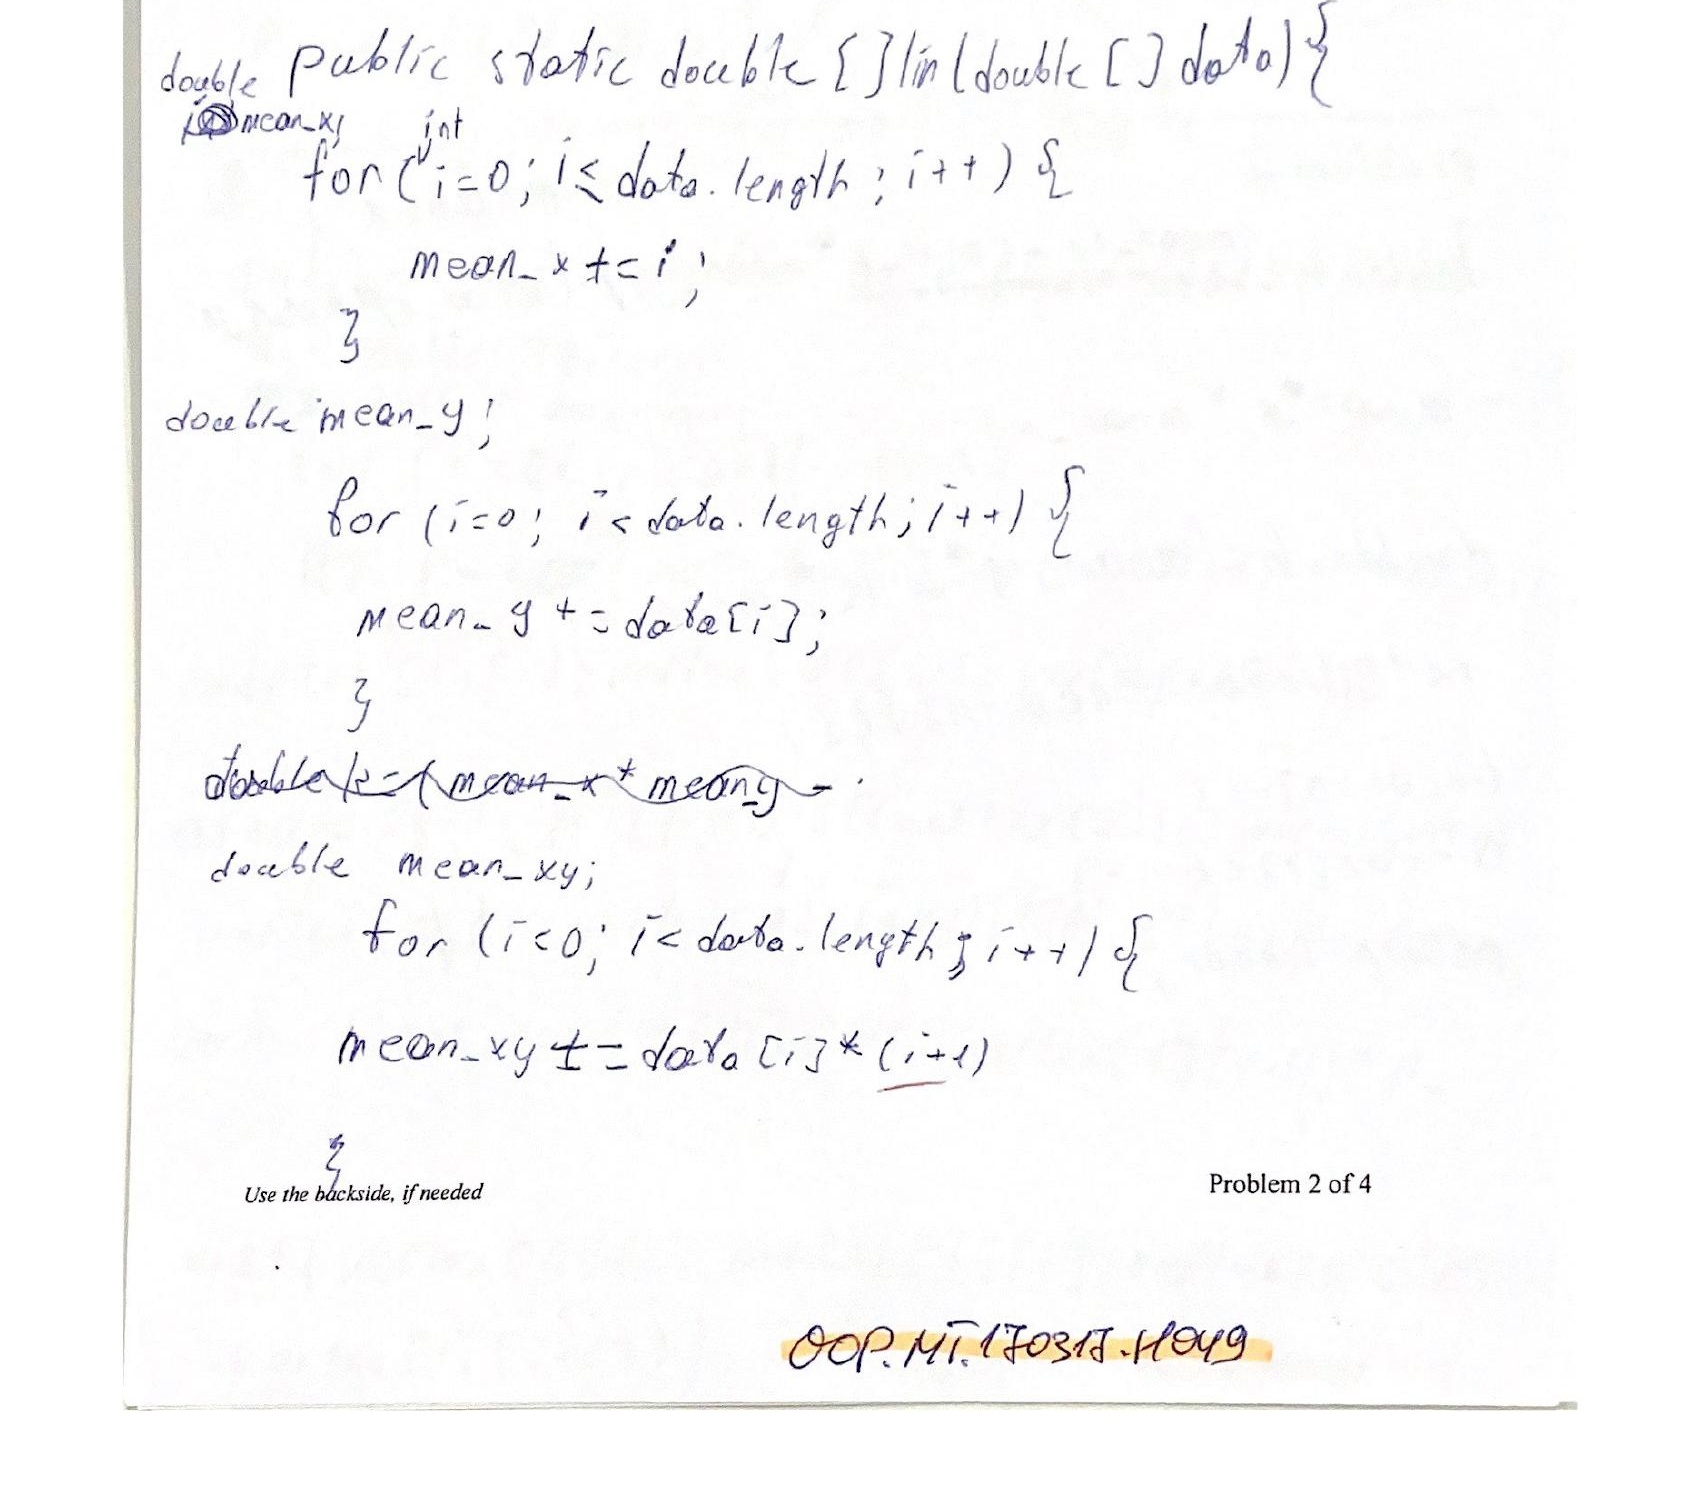 public static double [] lin(double [] data) {
double mean_x;
for (int i=0; i≤ data.length; i++) {
mean_x += i;
}
double mean_y;
for (i=0; i< data.length; i++) {
mean_y += data[i];
}
double k=(mean_x * mean_y -
double mean_xy;
for (i=0; i< data.length; i++) {
mean_xy += data[i] * (i+1)
}
Use the backside, if needed
Problem 2 of 4
OOP.MT.170317.H049